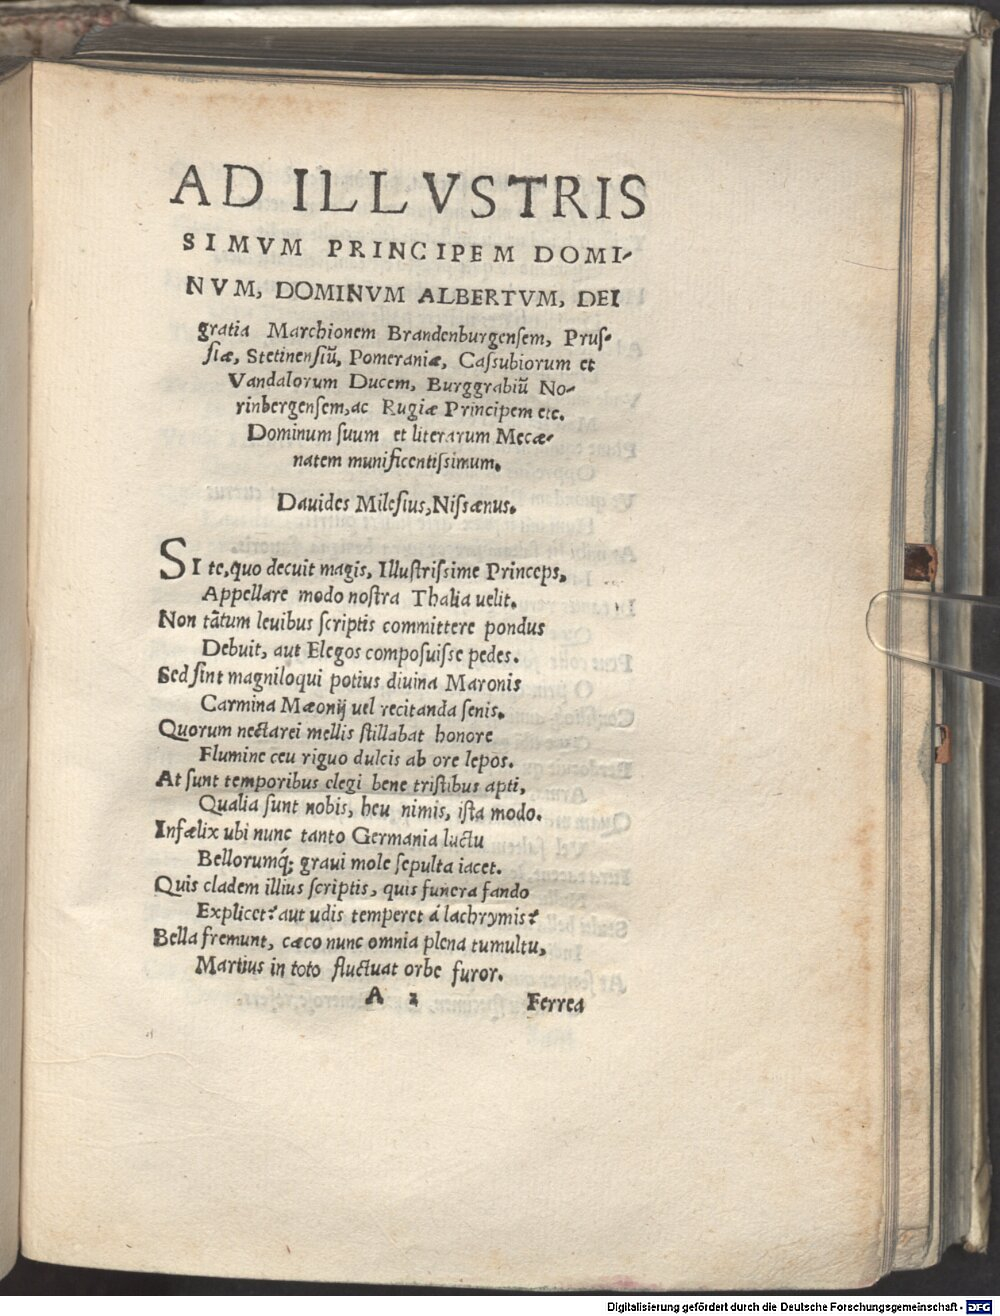 AD ILLVSTRIS
SIMVM PRINCIPEM DOMI-
NVM, DOMINVM ALBERTVM, DEI
gratia Marchionem Brandenburgensem, Prus-
siæ, Stetinensiũ, Pomeraniæ, Cassubiorum et
Vandalorum Ducem, Burggrabiũ No-
rinbergensem, ac Rugiæ Principem etc.
Dominum suum et literarum Mecæ-
natem munificentissimum.
Dauides Milesius, Nissænus.
SI te, quo decuit magis, Illustrissime Princeps,
Appellare modo nostra Thalia uelit.
Non tãtum leuibus scriptis committere pondus
Debuit, aut Elegos composuisse pedes.
Sed sint magniloqui potius diuina Maronis
Carmina Mæonij uel recitanda senis.
Quorum nectarei mellis stillabat honore
Flumine ceu riguo dulcis ab ore lepos.
At sunt temporibus elegi bene tristibus apti,
Qualia sunt nobis, heu nimis, ista modo.
Infælix ubi nunc tanto Germania luctu
Bellorumq́; graui mole sepulta iacet.
Quis cladem illius scriptis, quis funera fando
Explicet? aut udis temperet á lachrymis?
Bella fremunt, cæco nunc omnia plena tumultu,
Martius in toto fluctuat orbe furor.
A 2 Ferrea
Digitalisierung gefördert durch die Deutsche Forschungsgemeinschaft - DFG